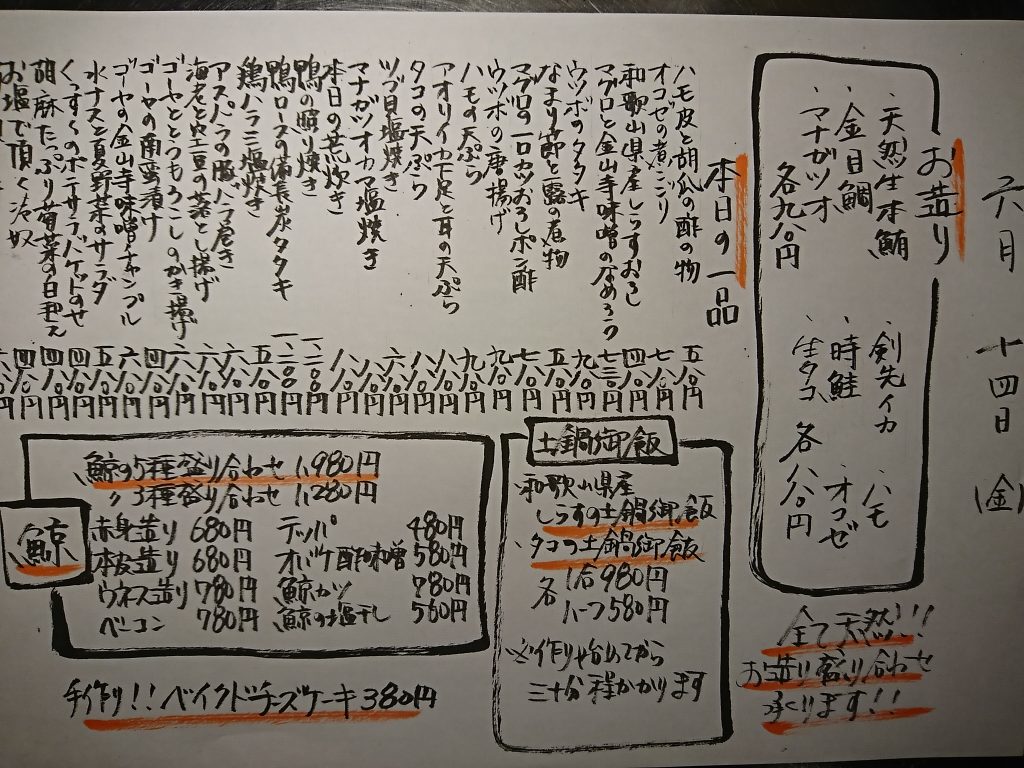 六月 十四日 (金)
お造り
・天然生本鮪
・金目鯛
・マナガツオ
各九八〇円
・剣先イカ
・時鮭
・生タコ
・ハモ
・オコゼ
各八八〇円
全て天然!!
お造り盛り合わせ
承ります!!
本日の一品
ハモ皮と胡瓜の酢の物 五八〇円
オコゼの煮こごり 七八〇円
和歌山県産しらすおろし 四八〇円
マグロと金山寺味噌のなめろう 七三〇円
ウツボのタタキ 九八〇円
なまり節と蕗の煮物 五八〇円
マグロの一口カツおろしポン酢 七八〇円
ウツボの唐揚げ 九八〇円
ハモの天ぷら 九八〇円
アオリイカ下足と耳の天ぷら 八八〇円
タコの天ぷら 八八〇円
ツブ貝塩焼き 六八〇円
マナガツオカマ塩焼き 八八〇円
本日の荒炊き 八八〇円
鴨の照り焼き 一、二〇〇円
鴨ロースの備長炭タタキ 一、二〇〇円
鶏ハラミ塩焼き 五八〇円
アスパラの豚バラ巻き 六八〇円
海老と空豆の落とし揚げ 六八〇円
ゴーヤととうもろこしのかき揚げ 六八〇円
ゴーヤの南蛮漬け 四八〇円
ゴーヤの金山寺味噌チャンプル 六八〇円
水ナスと夏野菜のサラダ 五八〇円
くっすくのポテサラバゲットのせ 四八〇円
胡麻たっぷり菊菜の白和え 四八〇円
お塩で頂く冷奴
土鍋御飯
・和歌山県産
しらすの土鍋御飯
・タコの土鍋御飯
各 1合980円
ハーフ580円
※作り始めてから
三十分程かかります
鯨
鯨の5種盛り合わせ 1,980円
〃3種盛り合わせ 1,280円
赤身造り 680円 テッパ 480円
本皮造り 680円 オバケ酢味噌 580円
ウネス造り 780円 鯨カツ 780円
ベーコン 780円 鯨の塩干し 560円
手作り!!ベイクドチーズケーキ380円